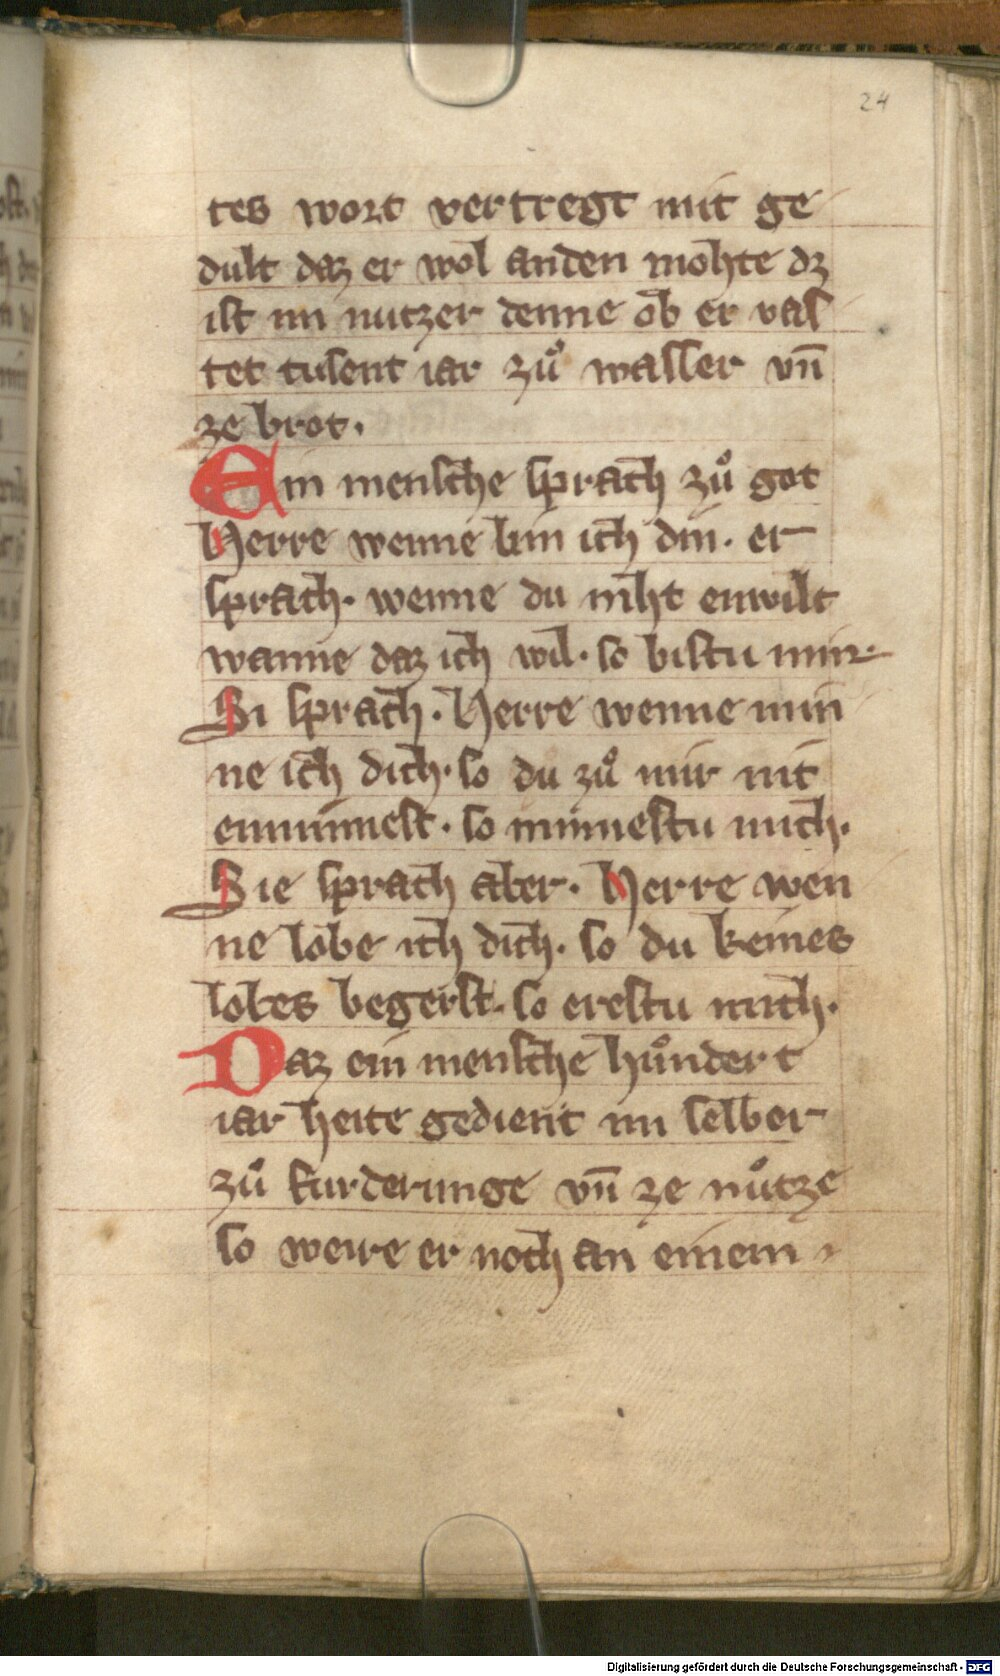 24
tes wort vertregt mit ge
dult daz er wol anden mohte dz
ist im nutzer denne ob er vas
tet tusent iar zuͦ wasser vn̄
ze brot.
Ein mensche sprach zuͦ got
Herre wenne bin ich din. er
sprach. wenne du niht enwilt
wanne daz ich wil. so bistu min.
Si sprach. Herre wenne min
ne ich dich. so du zuͦ mir nit
enminnest. so minnestu mich.
Sie sprach aber. Herre wen
ne lobe ich dich. so du keines
lobes begerst. so erestu mich.
Daz ein mensche huͦndert
iar heite gedient im selber
zuͦ furderunge vn̄ ze nuͦtze
so weire er noch an einem
Digitalisierung gefördert durch die Deutsche Forschungsgemeinschaft - DFG